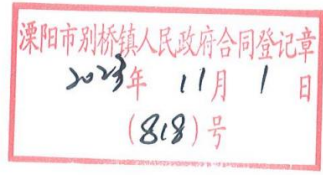 溧阳市别桥镇人民政府合同登记章
2023年 11月 1 日
(818)号